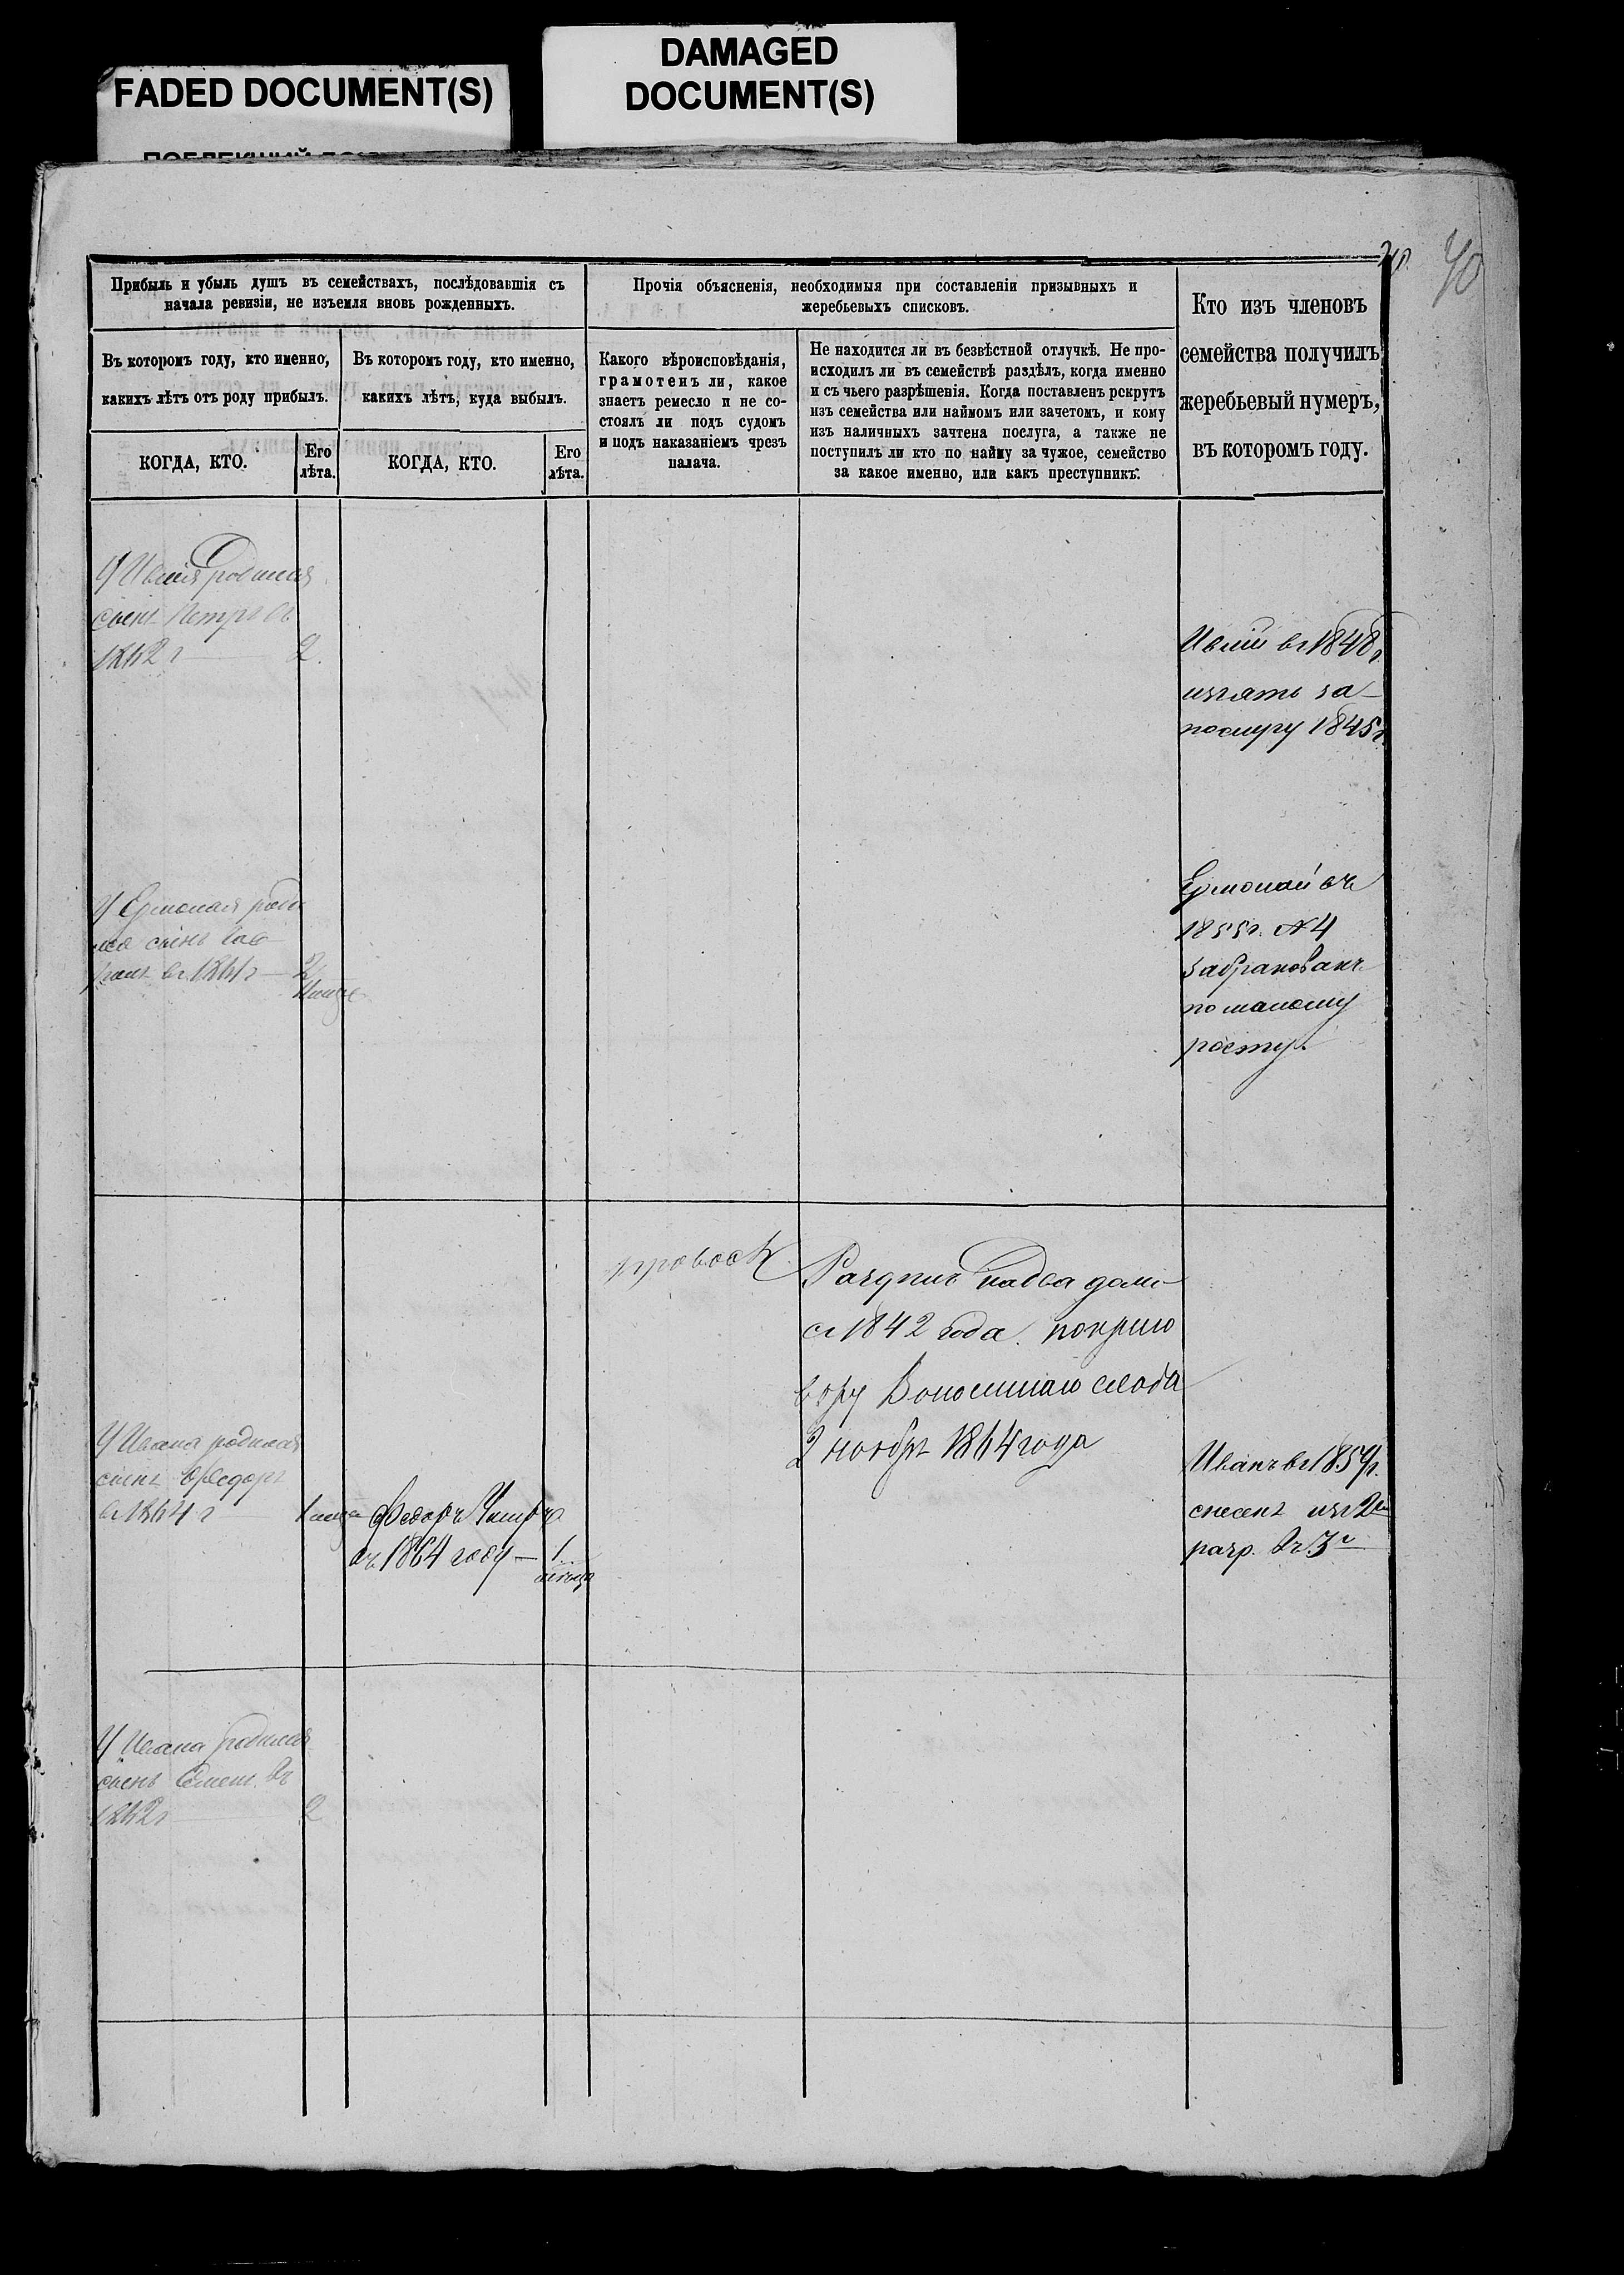 FADED DOCUMENT(S)
DAMAGED
DOCUMENT(S)
40
Прибыль и убыль душъ въ семействахъ, послѣдовавшія съ
начала ревизіи, не изъемля вновь рожденныхъ.
Въ которомъ году, кто именно,
какихъ лѣтъ отъ роду прибылъ.
КОГДА, КТО.
Его
лѣта.
Въ которомъ году, кто именно,
какихъ лѣтъ, куда выбылъ.
КОГДА, КТО.
Его
лѣта.
Прочія объясненія, необходимыя при составленіи призывныхъ и
жеребьевыхъ списковъ.
Какого вѣроисповѣданія,
грамотенъ ли, какое
знаетъ ремесло и не со-
стоялъ ли подъ судомъ
и подъ наказаніемъ чрезъ
палача.
Не находится ли въ безвѣстной отлучкѣ. Не про-
исходилъ ли въ семействѣ раздѣлъ, когда именно
и съ чьего разрѣшенія. Когда поставленъ рекрутъ
изъ семейства или наймомъ или зачетомъ, и кому
изъ наличныхъ зачтена послуга, а также не
поступилъ ли кто по найму за чужое, семейство
за какое именно, или какъ преступникъ.
Кто изъ членовъ
семейства получилъ
жеребьевый нумеръ,
въ которомъ году.
У родился
сынъ Петръ въ
1862 г 2.
въ 1848 г
изъятъ за
послугу 1845 г.
У Ермолая роди
лся сынъ
въ 1861 г 2
Ермолай въ
1855 г. № 4
забракованъ
по малому
росту.
на два дома
съ 1842 года.
2 ноября 1864 года
У Ивана родился
сынъ Федоръ
въ 1864 г 1
Федоръ Умеръ
въ 1864 году — 1
Иванъ въ 1854 г.
снесенъ изъ 2
разр. въ 3
У Ивана родился
сынъ Семенъ въ
1862 г 2